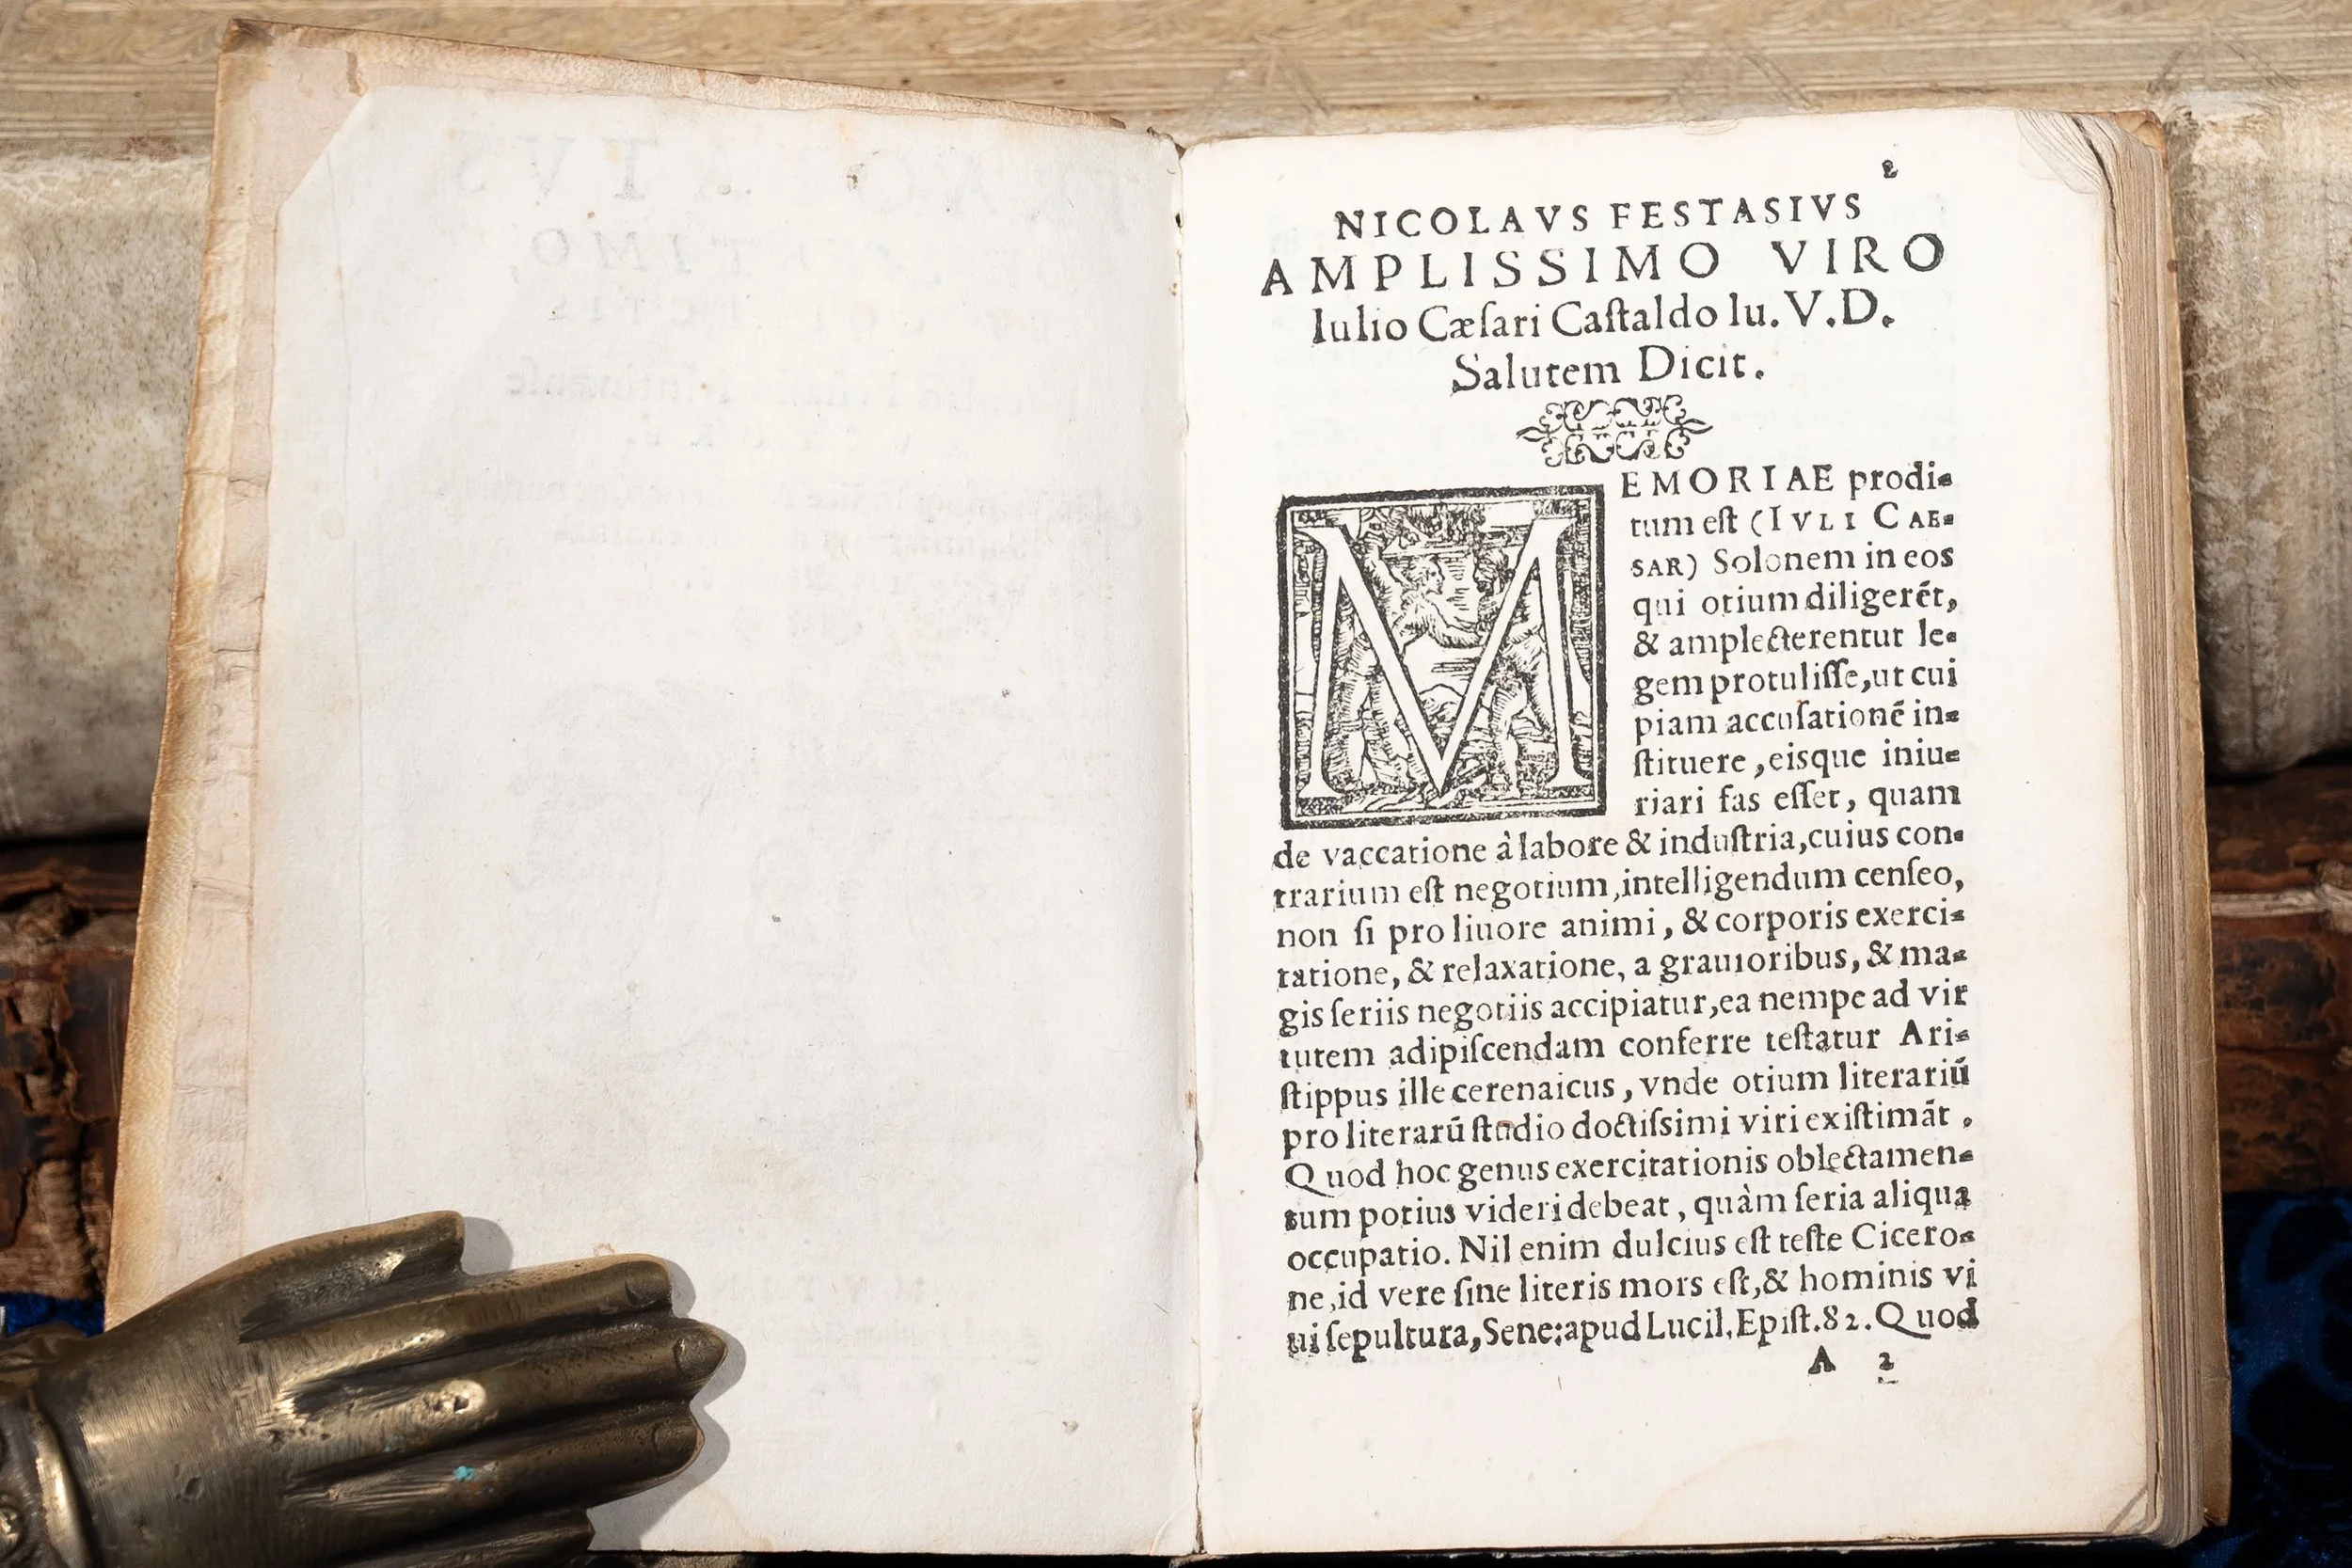 2
NICOLAVS FESTASIVS
AMPLISSIMO VIRO
Iulio Cæſari Caſtaldo Iu. V.D.
Salutem Dicit.
MEMORIAE prodi-
tum eſt (IVLI CAE-
SAR) Solonem in eos
qui otium diligerēt,
& amplecterentur le-
gem protuliſſe, ut cui
piam accuſationē in-
ſtituere, eisque iniu-
riari fas eſſet, quam
de vaccatione à labore & induſtria, cuius con-
trarium eſt negotium, intelligendum cenſeo,
non ſi pro liuore animi, & corporis exerci-
tatione, & relaxatione, a grauioribus, & ma-
gis ſeriis negotiis accipiatur, ea nempe ad vir
tutem adipiſcendam conferre teſtatur Ari-
ſtippus ille cerenaicus, vnde otium literariū
pro literarū ſtudio doctiſsimi viri exiſtimāt.
Quod hoc genus exercitationis oblectamen-
tum potius videri debeat, quàm ſeria aliqua
occupatio. Nil enim dulcius eſt teſte Cicero-
ne, id vere ſine literis mors eſt, & hominis vi
ui ſepultura, Sene: apud Lucil. Epiſt. 82. Quod
A 2